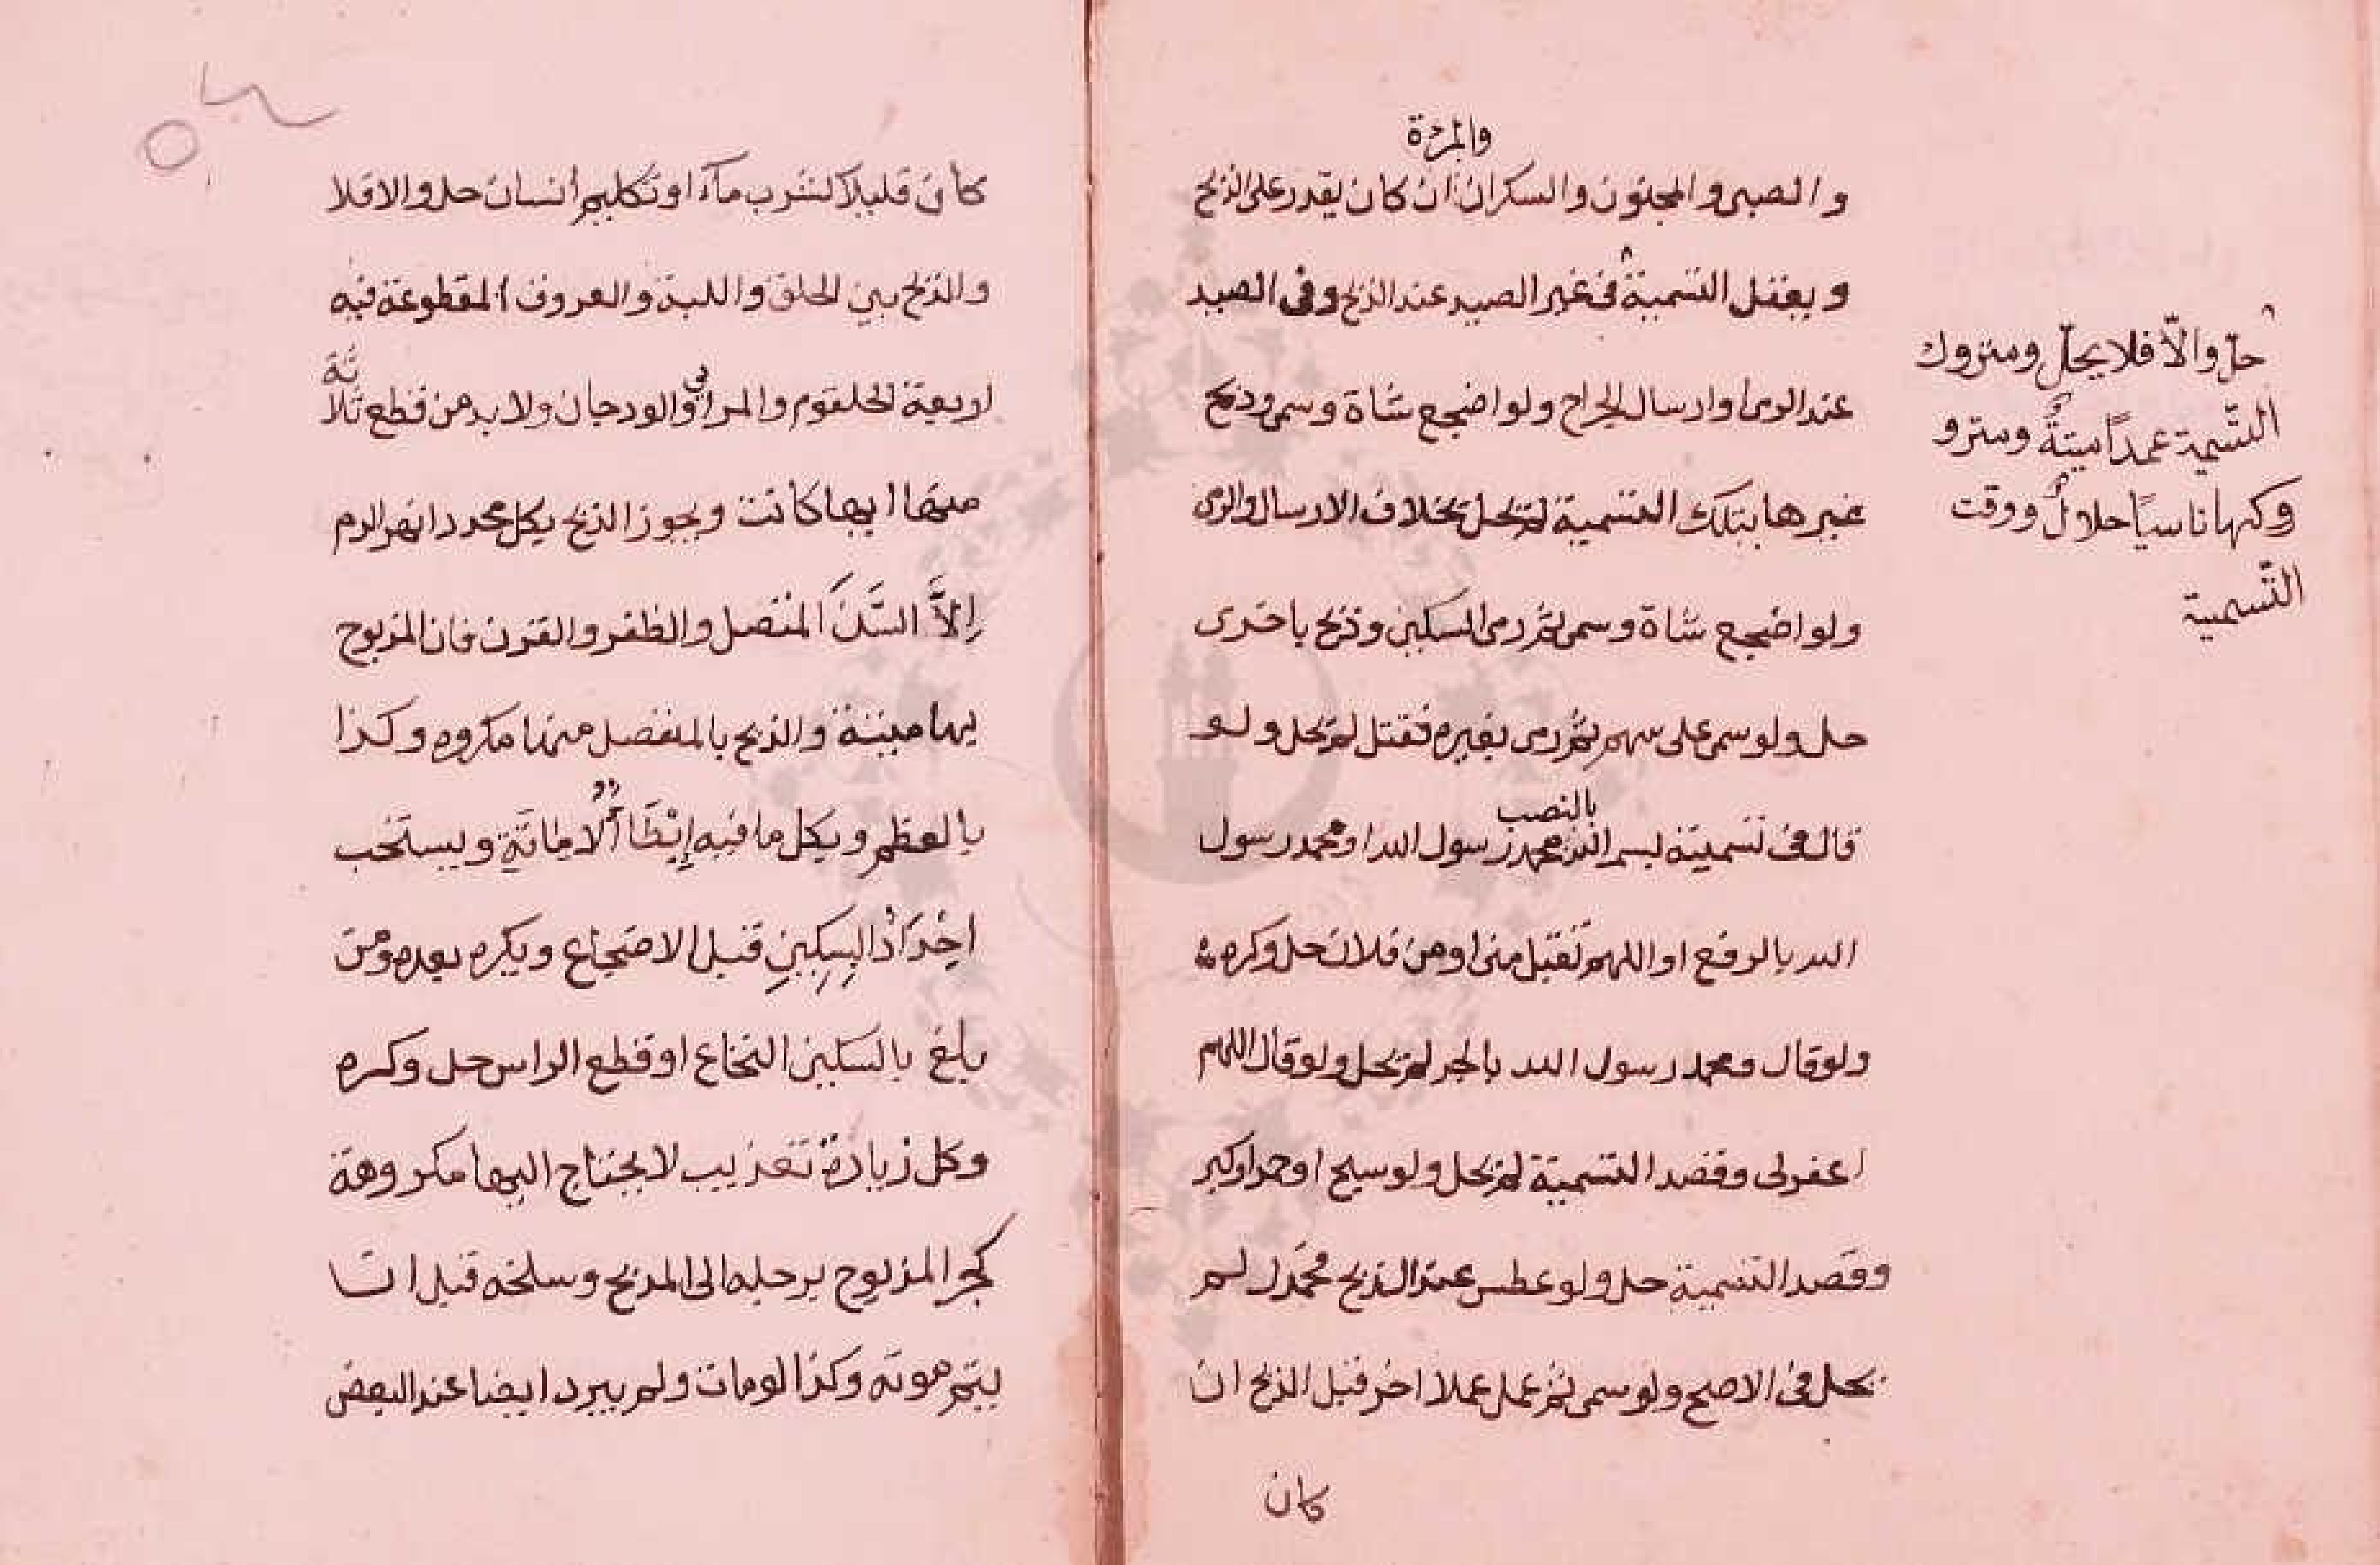 والمرءة
والصبى والمجنون والسكران ان كان يقدر على الذبح
ويعقل التسمية فى غير الصيد عند الذبح وفى الصيد
عند الرمى او ارسال الجراح ولو اضجع شاة وسمى وذبح
غيرها بتلك التسمية لم يحل بخلاف الارسال والرمى
ولو اضجع شاة وسمى ثم رمى السكين وذبح باخرى
حل ولو سمى على سهم ثم رمى بغيره فقتل لم يحل ولو
بالنصب
قال فى تسميته بسم الله محمد رسول الله او محمد رسول
الله بالرفع او اللهم تقبل منى او من فلان حل وكره
ولو قال ومحمد رسول الله بالجر لم يحل ولو قال اللهم
اغفرلى وقصد التسمية لم يحل ولو سبح او حمد او كبر
وقصد التسمية حل ولو عطس عند الذبح فحمد ل لم
يحل فى الاصح ولو سمى ثم عمل عملا اخر قبل الذبح ان
كان
حلّ والّا فلا يحلّ ومتروك
التّسمية عمدًا ميتةٌ ومترو
وكها ناسيًا حلالٌ ووقت
التّسمية
٥٦
كان قليلا كشرب مآء او تكليم انسان حل والا فلا
والذبح بين الحلق واللبة والعروق المقطوعة فيه
اربعة الحلقوم والمرائ والودجان ولا بد من قطع ثلاثة
منها ايها كانت ويجوز الذبح بكل محدد انهر الدم
اِلاَّ السَّنَ المتصل والظفر والقرن فان المذبوح
بها ميتة والذبح بالمنفصل منها مكروه وكذا
بالعظم وبكل ما فيه اِبْطَاءُ الاماتة ويستحب
احْدَادُ السِكِينِ قبل الاضجاع ويكره بعده ومن
بلغ بالسكين النخاع او قطع الراس حل وكره
وكل زيادة تعذيب لا يحتاج اليها مكروهة
كجر المذبوح برجله الى المذبح وسلخه قبل ان
يتم موته وكذا لو مات ولم يبرد ايضا عند البعض